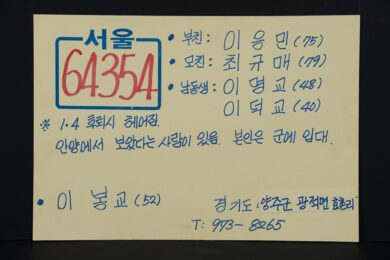 서울
64354
• 부친: 이응민 (75)
• 모친: 최규매 (79)
• 남동생: 이명교 (48)
이덕교 (40)
※ 1.4 후퇴시 헤어짐
안양에서 보았다는 사람이 있음. 본인은 군에 입대.
• 이봉교 (52)
경기도 양주군 광적면 효촌리
T: 973-8265